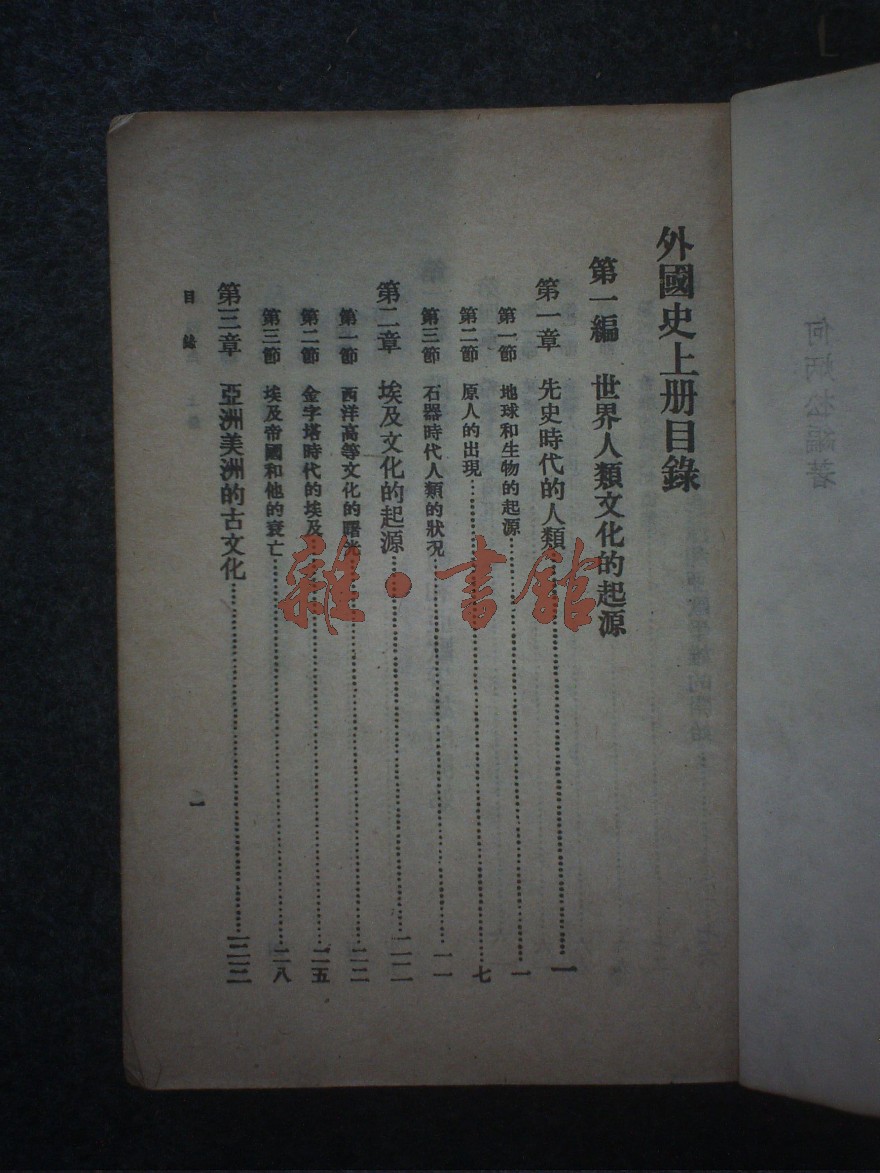 何炳松編著
外國史上册目錄
第一編 世界人類文化的起源
第一章 先史時代的人類……一
第一節 地球和生物的起源……一
第二節 原人的出現……七
第三節 石器時代人類的狀况……一一
第二章 埃及文化的起源……二二
第一節 西洋高等文化的曙光……二二
第二節 金字塔時代的埃及……二五
第三節 埃及帝國和他的衰亡……二八
第三章 亞洲美洲的古文化……三二
目錄
一
雜·書館